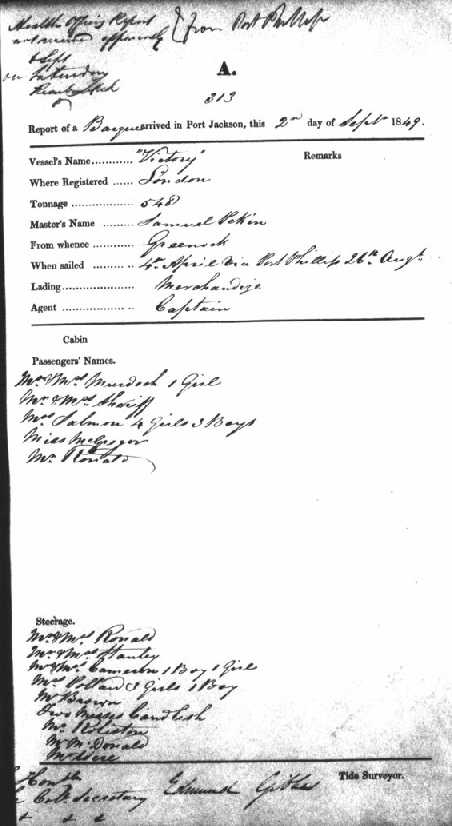 Health Officers Report
not received
Sept
on Saturday
from Port Phillip
A.
313
Report of a Barque arrived in Port Jackson, this 2nd day of Septr 1849.
Vessel's Name............ "Victory" Remarks
Where Registered ...... London
Tonnage .................. 548
Master's Name ........
From whence ............ Greenock
When sailed ............ 4th April via Port Phillip 26th Augt
Lading...................... Merchandize
Agent ..................... Captain
Cabin
Passengers' Names.
Mr & Mrs Murdoch 1 Girl
Mr & Mrs Shariff
Mrs Salmon 4 Girls 3 Boys
Miss McGregor
Mr Ronald
Steerage.
Mr & Mrs Ronald
Mr & Mrs Stanley
Mr & Mrs Cameron 1 Boy 1 Girl
Mrs 3 Girls 1 Boy
Mr Brown
Two Misses Candlish
Mr
Mr McDonald
Mr
Edmund Tide Surveyor.
Honble
Col. Secretary